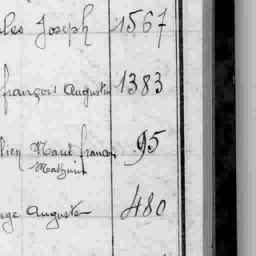 les Joseph 1567
françois Auguste 1383
lien Maul françois 95
auguste 480